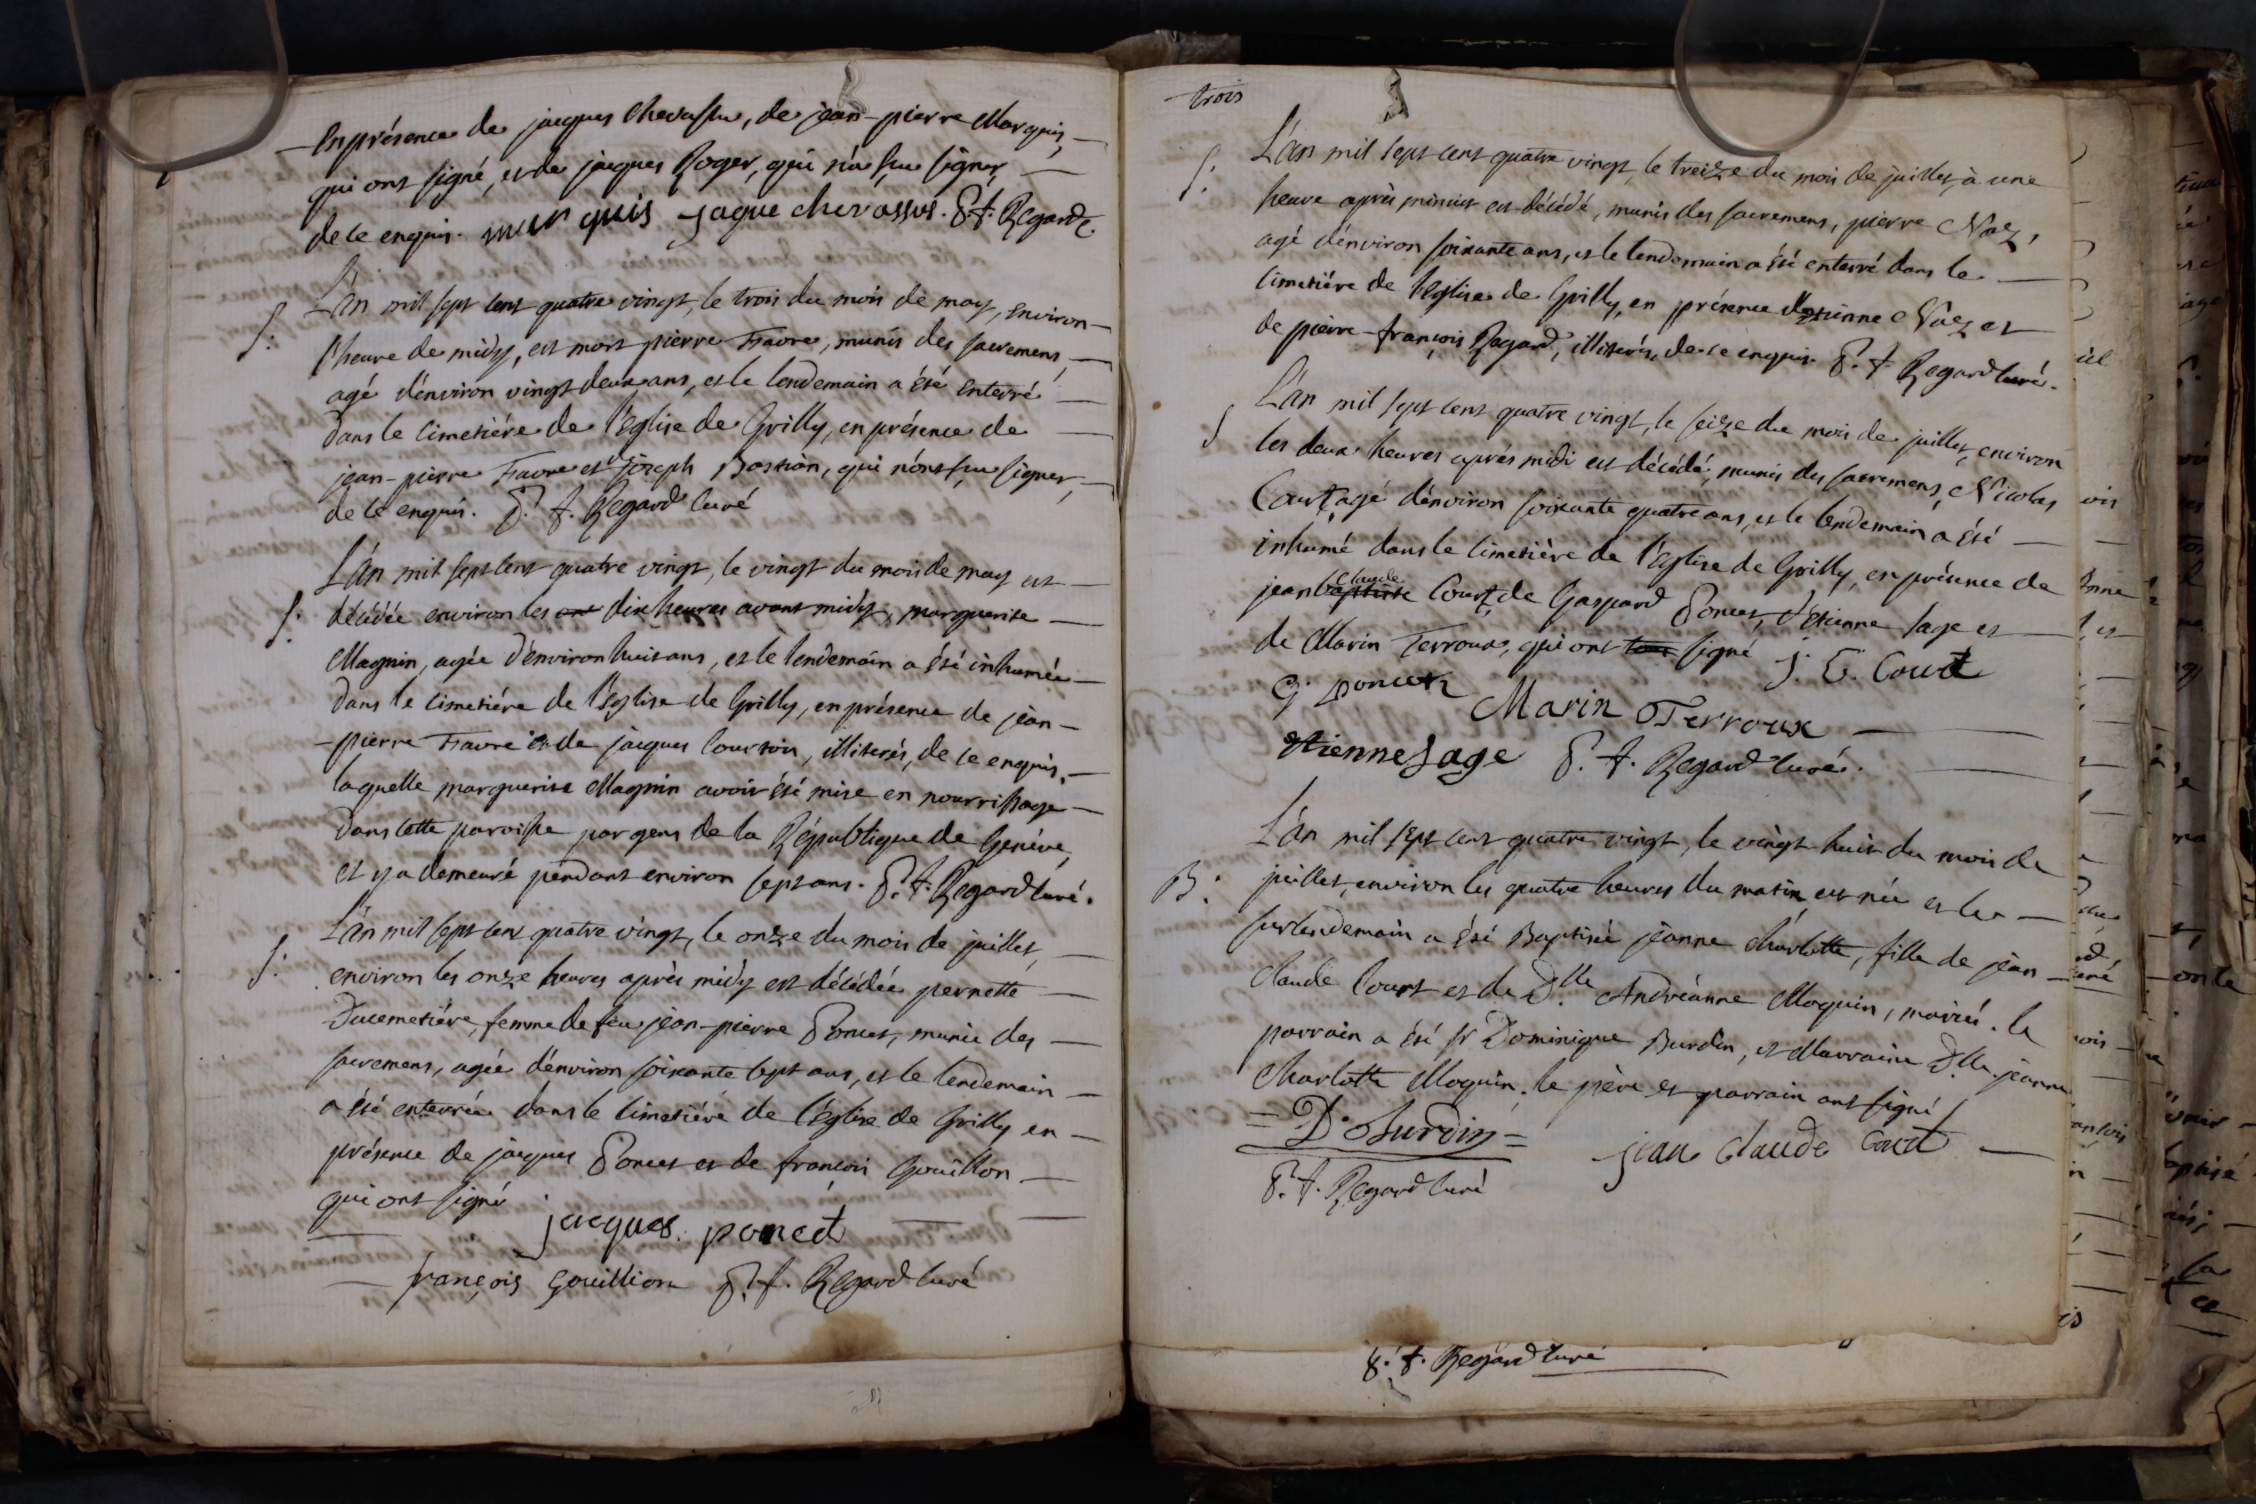 En présence de jacques Chevassu, de jean-pierre Marquis,
qui ont signé, et de jacques Roger, qui n'a sçu signer,
de ce enquis. mar quis jaque chevassus. P. f. Regard C.
S: L'an mil sept cent quatre vingt, le trois du mois de may, environ
l'heure de midy, est mort pierre Favre, munis des sacremens,
agé d'environ vingt deux ans, et le lendemain a été enterré
dans le cimetiére de l'église de Grilly, en présence de
jean-pierre Favre et joseph Bastian, qui n'ont sçu signer,
de ce enquis. P. f. Regard curé
S: L'an mil sept cent quatre vingt, le vingt du mois de may est
décédée environ les dix heures avant midy, marguerite
Magnin, agée d'environ huit ans, et le lendemain a été inhumée
dans le cimetiére de l'église de Grilly, en présence de jean-
-pierre Favre et de jacques Courtoin, illiterés, de ce enquis.
laquelle marguerite Magnin avoit été mise en nourrissage
dans cette paroisse par gens de la République de Genéve,
et y a demeuré pendant environ sept ans. P. f. Regard curé.
S: L'an mil sept cent quatre vingt, le onze du mois de juillet,
environ les onze heures après midy est décédée pernette
Ducemetiére, femme de feu jean-pierre Poncet, munie des
sacremens, agée d'environ soixante sept ans, et le lendemain
a été enterrée dans le cimetiére de l'église de Grilly en
présence de jacques Poncet et de françois Gouillon
qui ont signé
jacques. poncet
françois gouillion P. f. Regard curé
trois
S: L'an mil sept cent quatre vingt, le treize du mois de juillet, à une
heure après minuit est décédé, munis des sacremens, pierre Naz,
agé d'environ soixante ans, et le lendemain a été enterré dans le
cimetiére de l'église de Grilly, en présence d'etienne Naz et
de pierre-françois Regard, illiterés, de ce enquis. P. f. Regard curé.
S L'an mil sept cent quatre vingt, le seize du mois de juillet, environ
les deux heures après midi est décédé, munis des sacremens, Nicolas
Court, agé d'environ soixante quatre ans, et le lendemain a été
inhumé dans le cimetiére de l'église de Grilly, en présence de
jean baptiste claude Court, de Gaspard Poncet, d'Etienne Sage et
de Marin Terroux, qui ont tous signé J. C. Court
G. poncet Marin Terroux
etienne Sage P. f. Regard curé.
B: L'an mil sept cent quatre vingt, le vingt-huit du mois de
juillet, environ les quatre heures du matin est née et le
surlendemain a été Baptisée jeanne charlotte, fille de jean
Claude Court et de Dlle Andréanne Moquin, mariés. le
parrain a été sr Dominique Burdin, et Marraine Dlle jeanne
charlotte Moquin. le père et parrain ont signé
= D. Burdin =
jean Claude Court
P. f. Regard curé
P. f. Regard curé